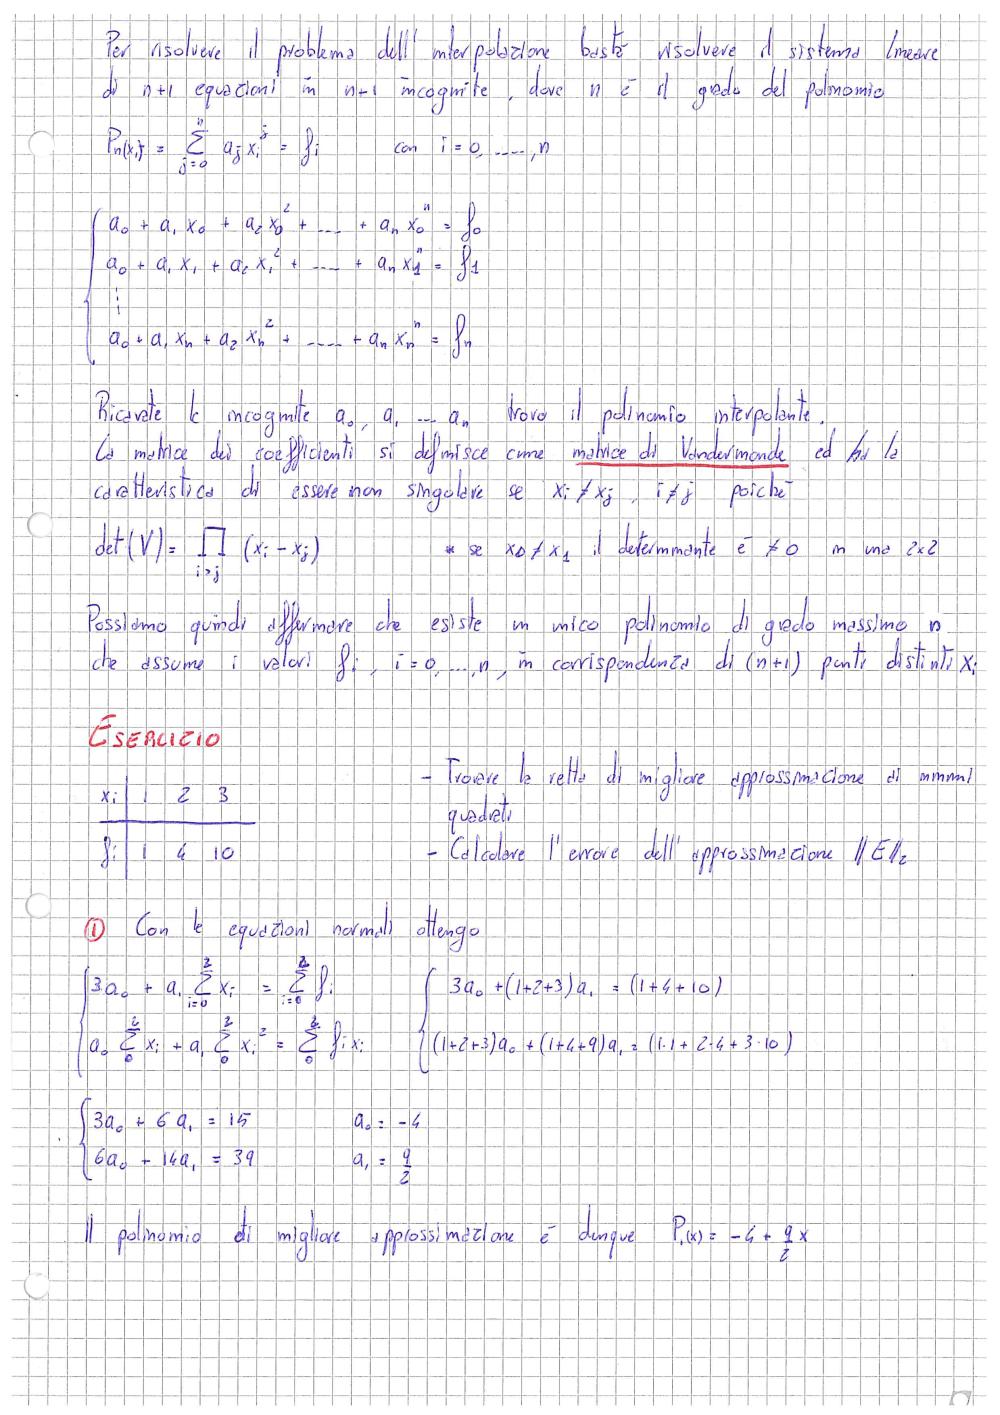 Per risolvere il problema dell'interpolazione basta risolvere il sistema lineare
di n+1 equazioni in n+1 incognite, dove n è il grado del polinomio
Pn(xi) = Σ_{j=0}^{n} aj xi^j = fi con i = 0, ....., n
a0 + a1 x0 + a2 x0^2 + .... + an x0^n = f0
a0 + a1 x1 + a2 x1^2 + .... + an x1^n = f1
⋮
a0 + a1 xn + a2 xn^2 + ..... + an xn^n = fn
Ricavate le incognite a0, a1 .... an trovo il polinomio interpolante.
La matrice dei coefficienti si definisce come matrice di Vandermonde ed ha la
caratteristica di essere non singolare se xi ≠ xj, i ≠ j poichè
det(V) = ∏_{i>j} (xi - xj) * se x0 ≠ x1 il determinante è ≠ 0 in una 2x2
Possiamo quindi affermare che esiste un unico polinomio di grado massimo n
che assume i valori fi, i = 0, ..., n, in corrispondenza di (n+1) punti distinti xi
ESERCIZIO
xi | 1 2 3
fi | 1 4 10
- Trovare la retta di migliore approssimazione ai minimi
quadrati
- Calcolare l'errore dell'approssimazione ||E||2
① Con le equazioni normali ottengo
3a0 + a1 Σ_{i=0}^{2} xi = Σ_{i=0}^{2} fi 3a0 + (1+2+3)a1 = (1+4+10)
a0 Σ_{0}^{2} xi + a1 Σ_{0}^{2} xi^2 = Σ_{0}^{2} fi xi (1+2+3)a0 + (1+4+9)a1 = (1·1 + 2·4 + 3·10)
3a0 + 6a1 = 15 a0 = -4
6a0 - 14a1 = 39 a1 = 9/2
Il polinomio di migliore approssimazione è dunque P1(x) = -4 + 9/2 x